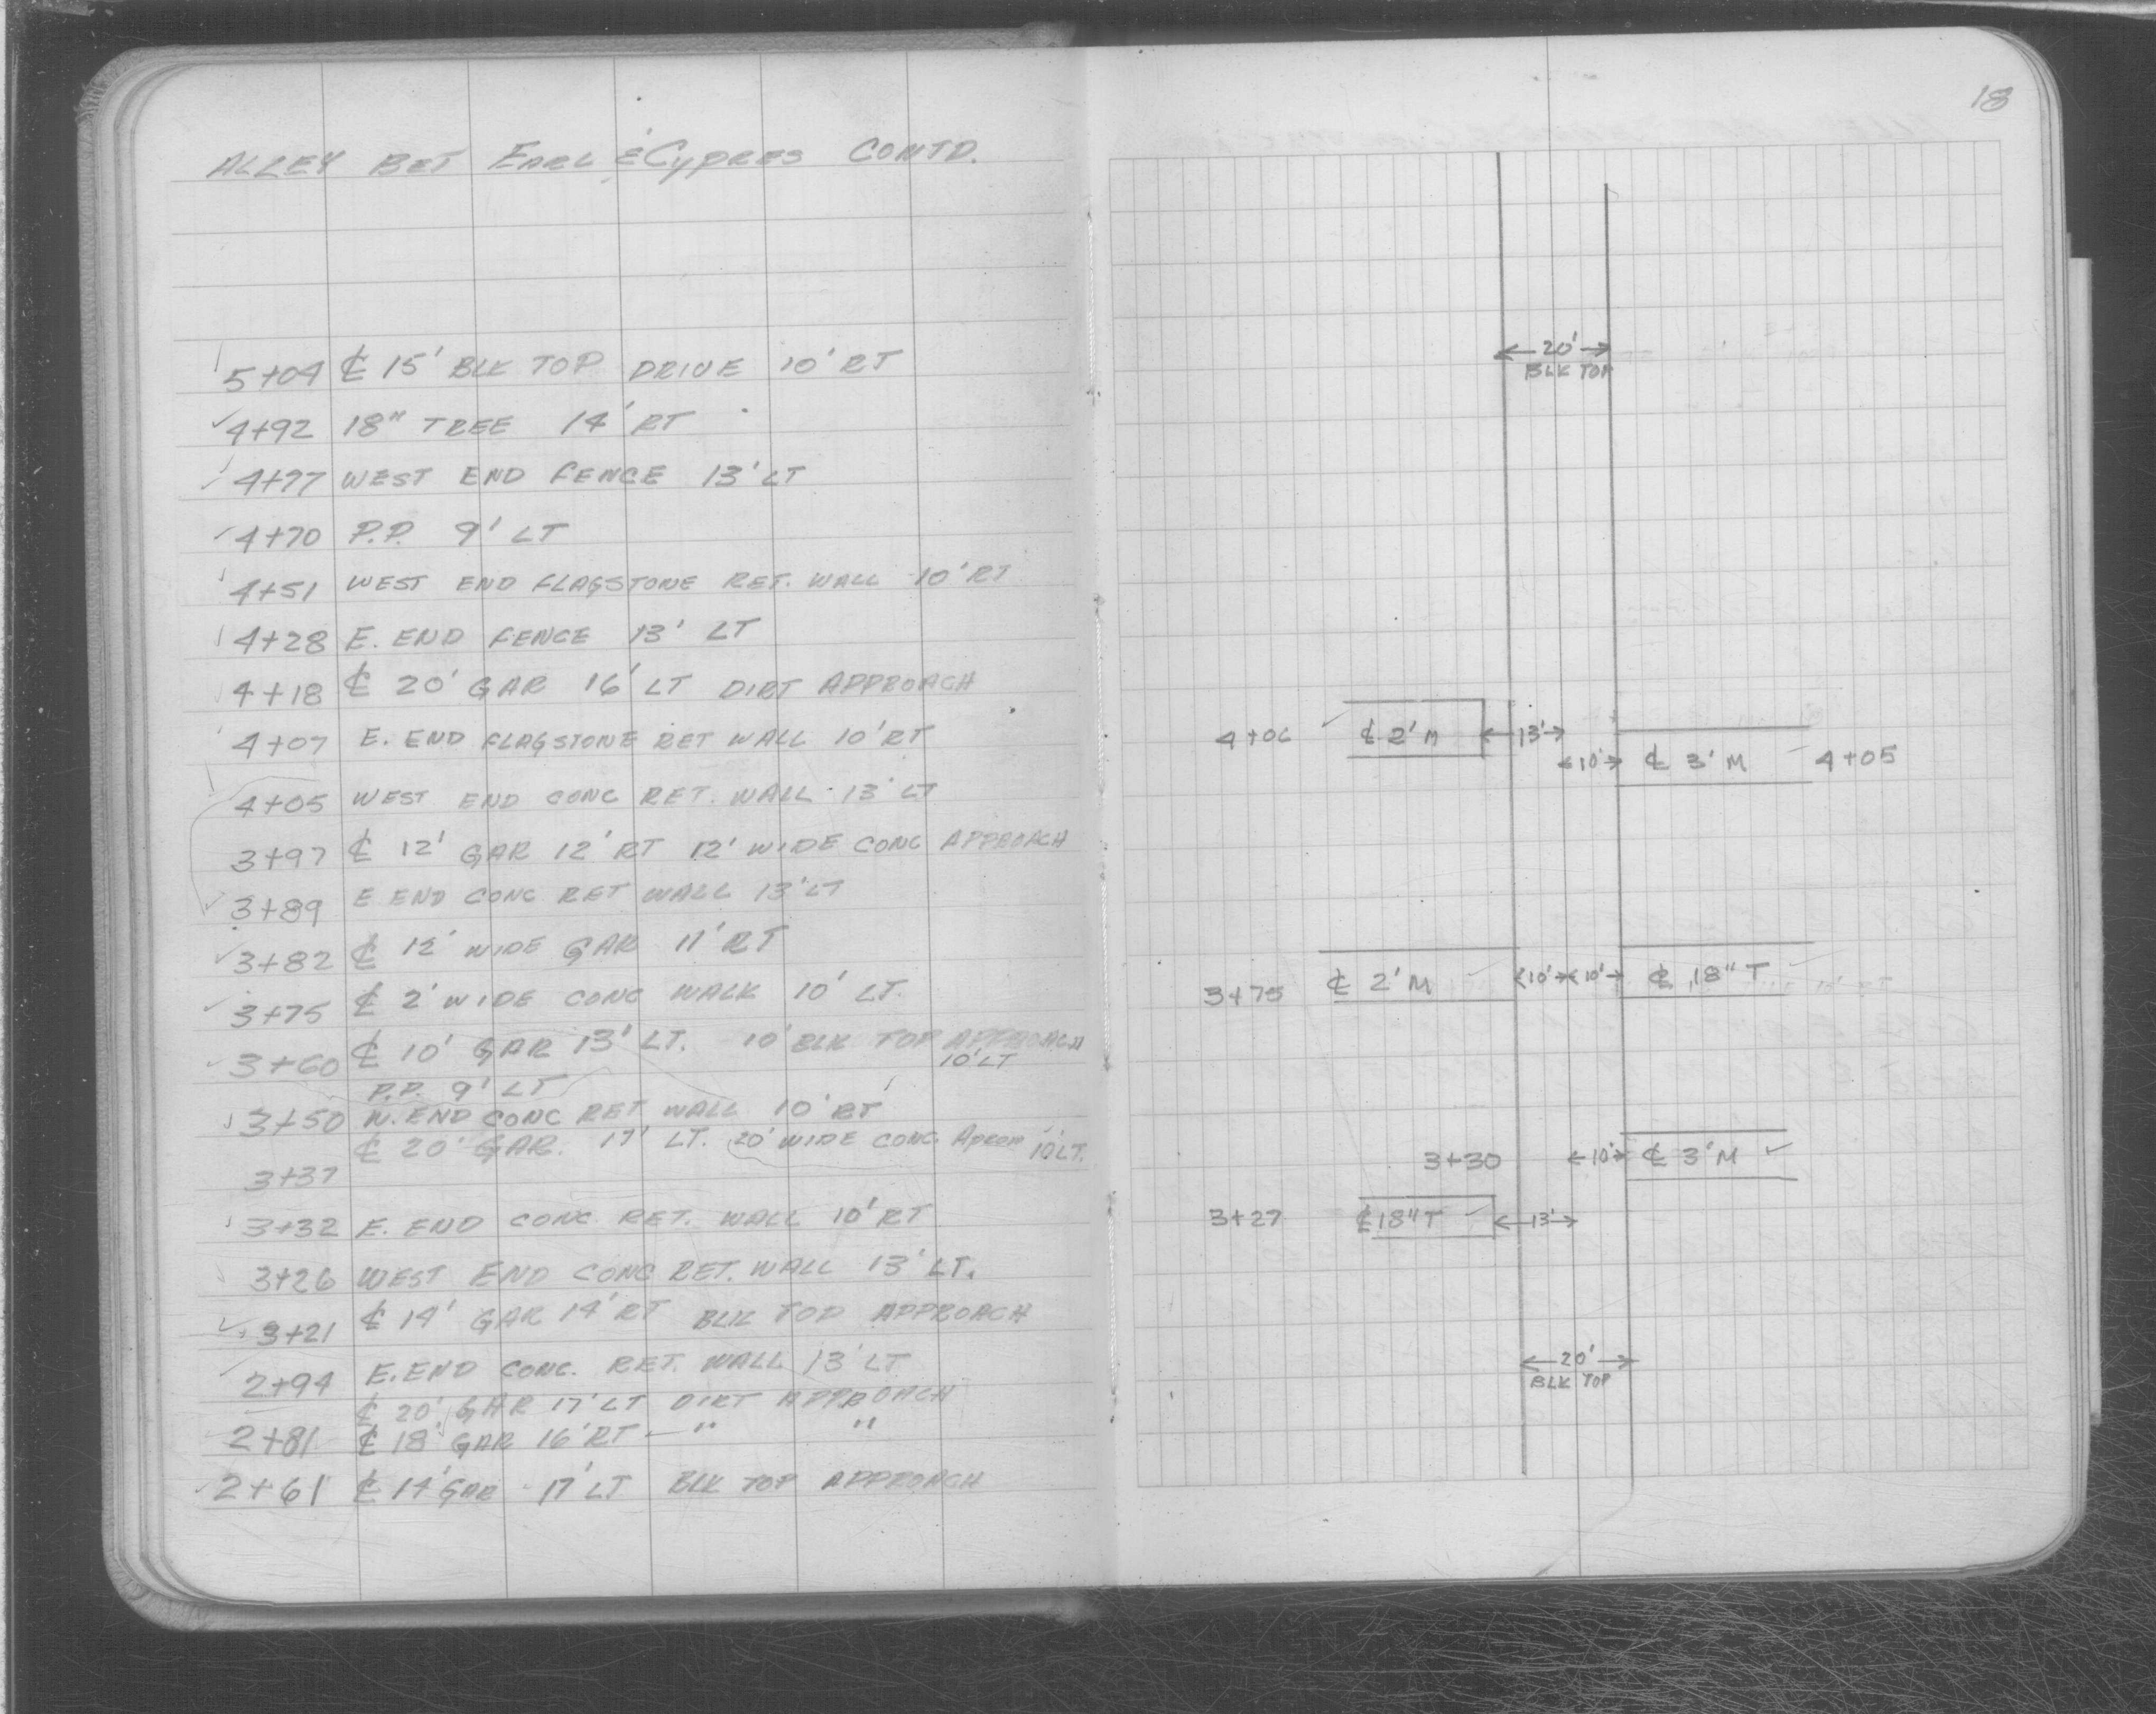 ALLEY BET EARL & CYPRES CONTD.
5+04 ℄ 15' BLK TOP DRIVE 10' RT
4+92 18" TREE 14' RT
4+77 WEST END FENCE 13' LT
4+70 P.P. 9' LT
4+51 WEST END FLAGSTONE RET. WALL 10' RT
4+28 E. END FENCE 13' LT
4+18 ℄ 20' GAR 16' LT DIRT APPROACH
4+07 E. END FLAGSTONE RET WALL 10' RT
4+05 WEST END CONC RET. WALL 13' LT
3+97 ℄ 12' GAR 12' RT 12' WIDE CONC APPROACH
3+89 E END CONC RET WALL 13' LT
3+82 ℄ 12' WIDE GAR 11' RT
3+75 ℄ 2' WIDE CONC WALK 10' LT.
3+60 ℄ 10' GAR 13' LT. 10' BLK TOP APPROACH
10' LT
P.P. 9' LT
3+50 W. END CONC RET WALL 10' RT
℄ 20' GAR. 17' LT. 20' WIDE CONC. Apron 10' LT.
3+37
3+32 E. END CONC. RET. WALL 10' RT
3+26 WEST END CONC RET. WALL 13' LT.
3+21 ℄ 14' GAR 14' RT BLK TOP APPROACH
2+94 E. END CONC. RET. WALL 13' LT
℄ 20' GAR 17' LT DIRT APPROACH
2+81 ℄ 18' GAR 16' RT — " "
2+61 ℄ 14' GAR 17' LT BLK TOP APPROACH
18
20'
BLK TOP
4+06 ℄ 2' M 13'
10' ℄ 3' M 4+05
3+75 ℄ 2' M 10' 10' ℄ 18" T
3+30 10' ℄ 3' M
3+27 ℄ 18" T 13'
20'
BLK TOP